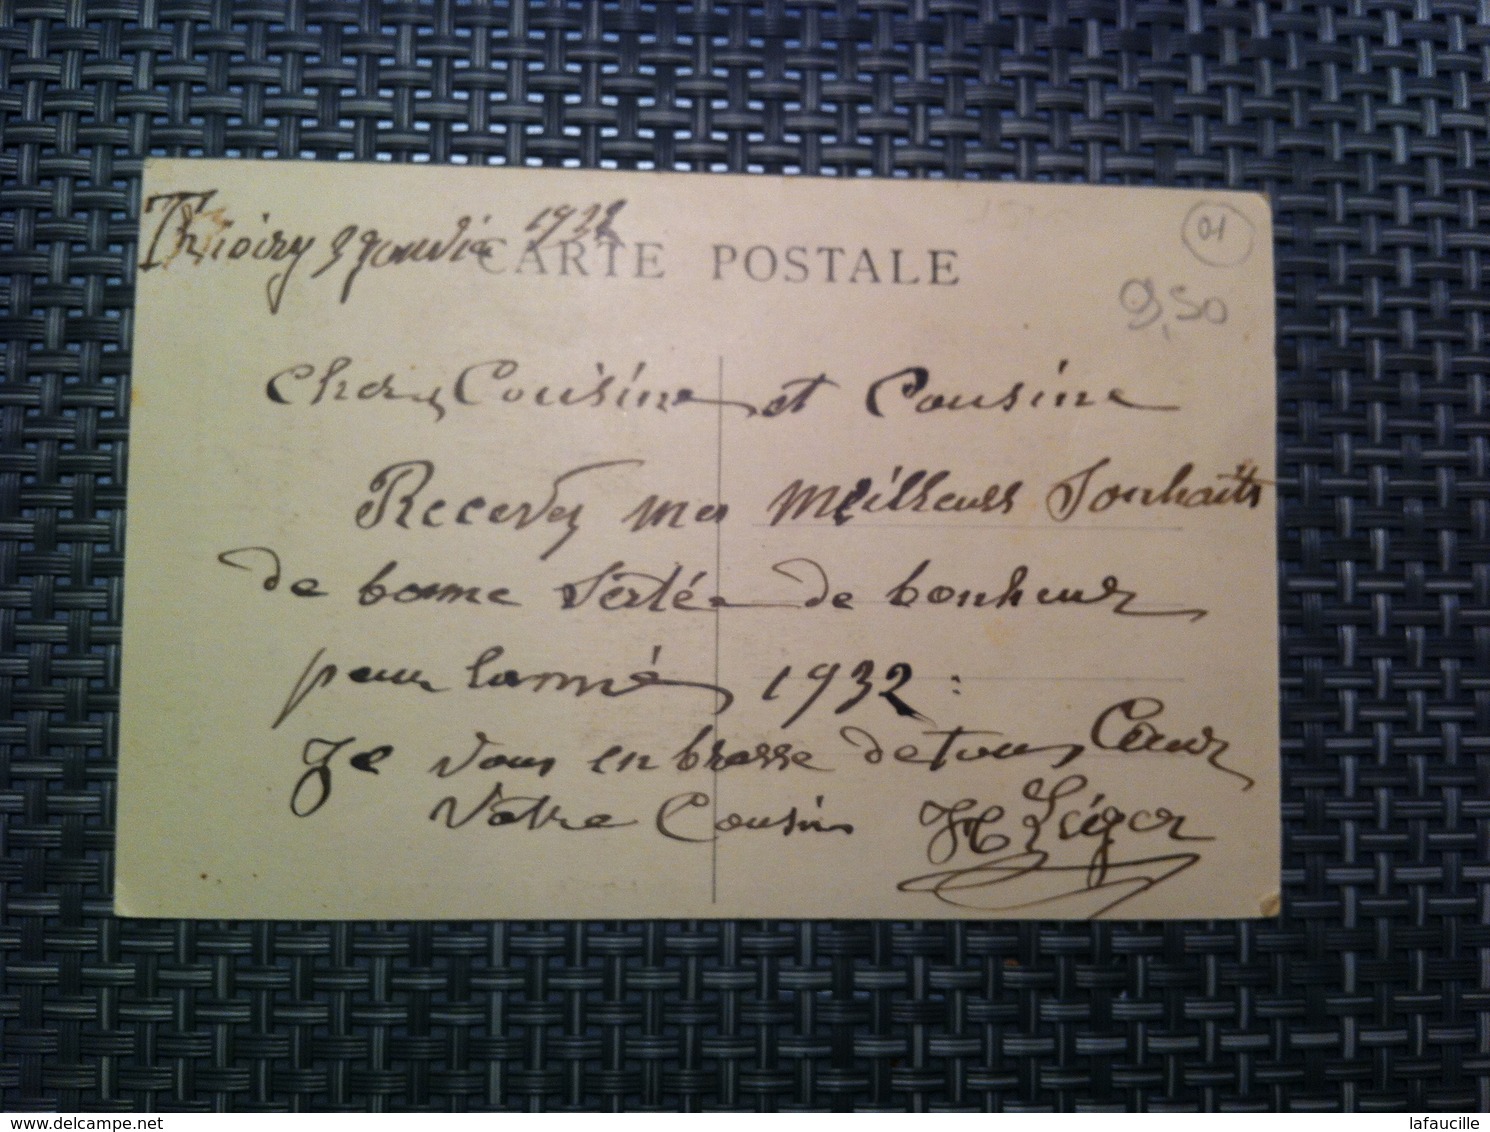 Thoiry 9 janvie 1932
CARTE POSTALE
01
9,50
Chers Cousine et Cousine
Recevez mes meilleurs Souhaits
de bonne sertée de bonheur
pour lanné 1932 :
Je vous enbrasse de tous Cœur
Votre Cousin H Léger
© delcampe.net
lafaucille